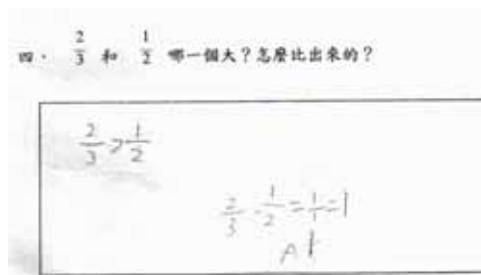 四. 2/3 和 1/2 哪一個大?怎麼比出來的?
2/3 > 1/2
2/3 - 1/2 = 1/1 = 1
A 1